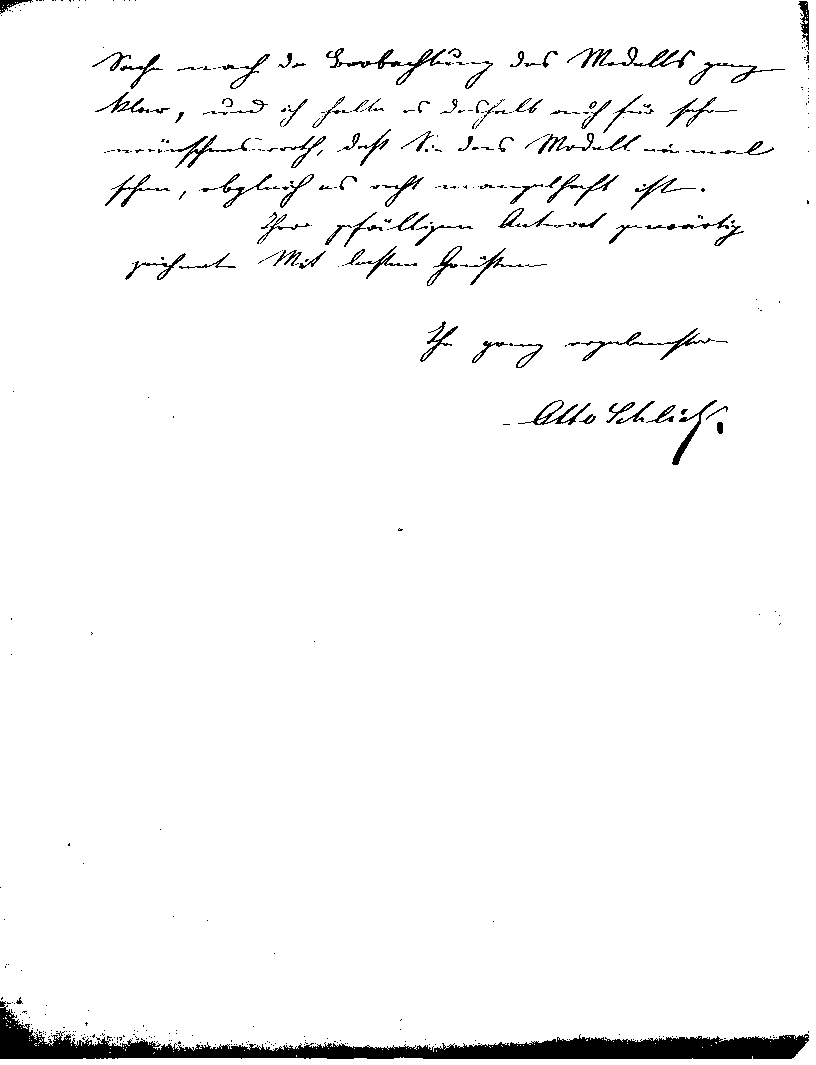 Sache nach der Beobachtung des Modells ganz
klar, und ich halte es deshalb auch für sehr
wünschenswerth, daß Sie das Modell einmal
sehen, obgleich es recht mangelhaft ist.
Ihrer gefälligen Antwort gewärtig
zeichnet Mit besten Grüßen
Ihr ganz ergebenster
Otto Schlick.